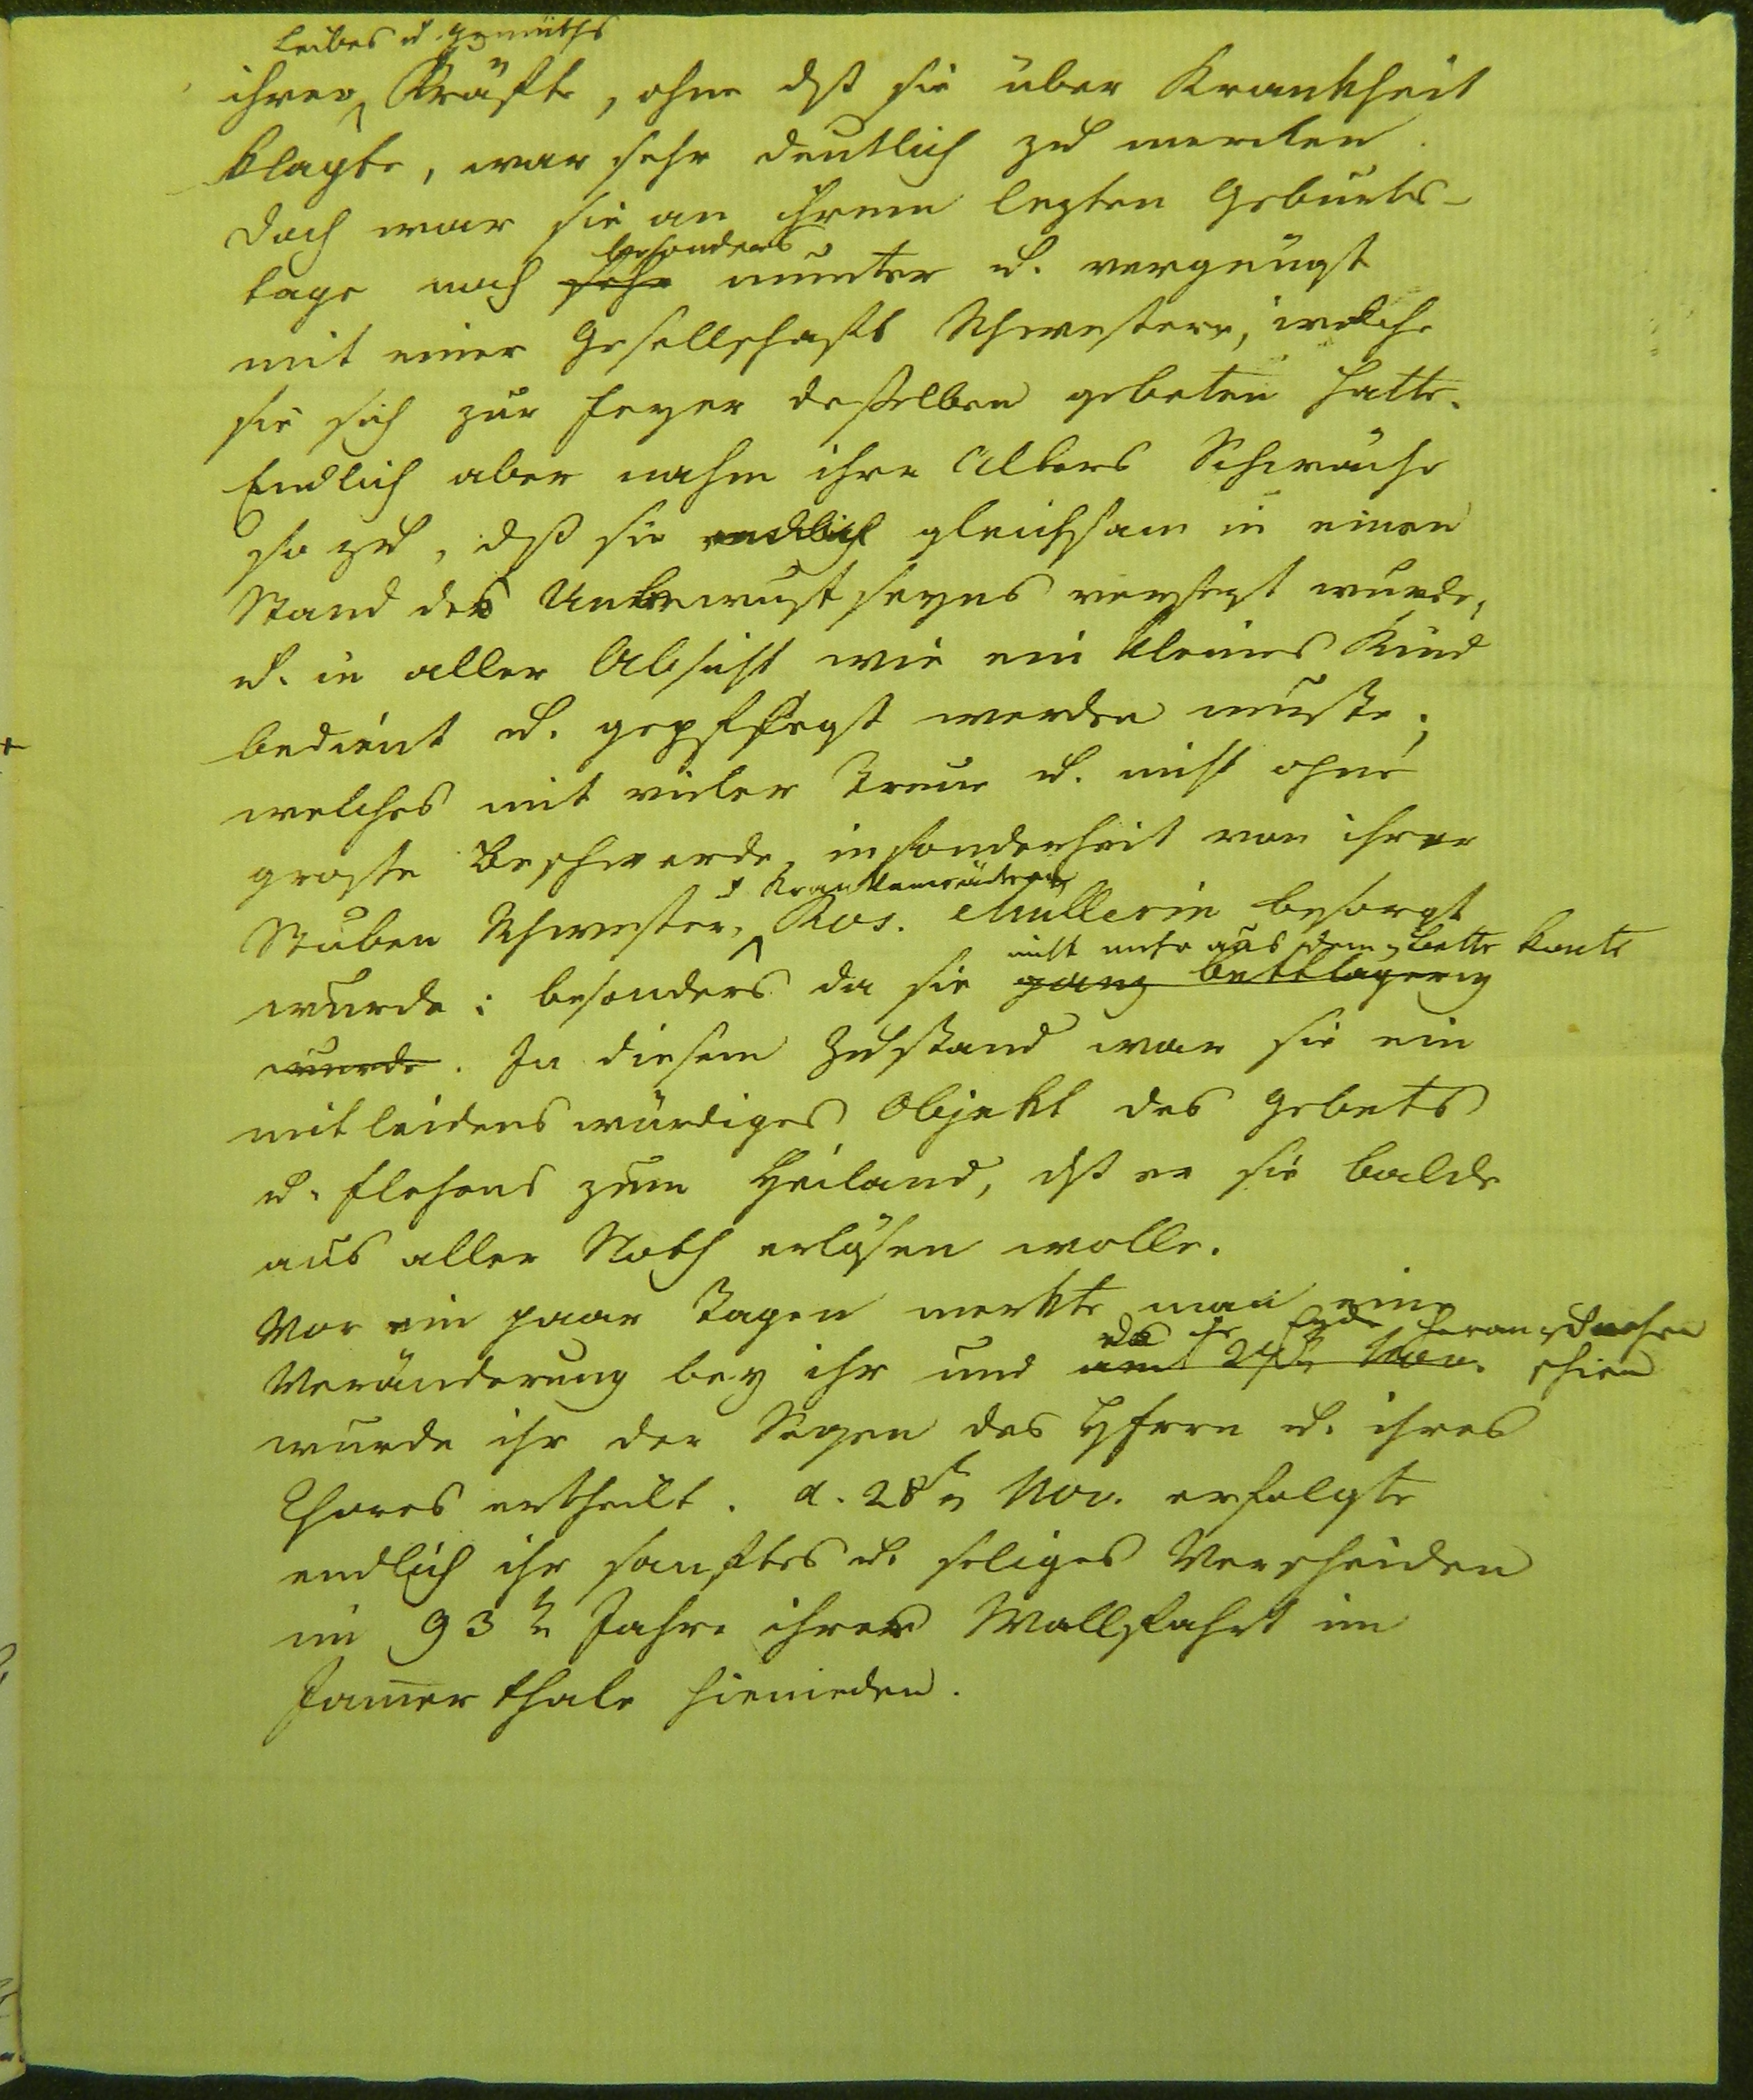 Leibes u. Gemüths
ihrer Kräfte, ohne dß sie über Krankheit
klagte, war sehr deutlich zu merken.
Doch war sie an ihrem lezten Geburts-
besonders
tage noch sehr munter u. vergnügt
mit einer Gesellschaft Schwestern, welche
sie sich zur Feyer deßelben gebeten hatte.
Endlich aber nahm ihre Alters Schwäche
so zu, dß sie endlich gleichsam in einen
Stand des Unbewustseyns versezt wurde,
u. in aller Absicht wie ein kleines Kind
bedient u. gepflegt werden mußte;
welches mit vieler Treue u. nicht ohne
große Beschwerde, insonderheit von ihrer
u. Krankenwärterin
Stuben Schwester, Ros. Müllerin besorgt
nicht mehr aus dem Bette konte
wurde: besonders da sie ganz bettlägerig
wurde. In diesem Zustand war sie ein
mitleidenswürdiges Objekt des Gebets
u. Flehens zum Heiland, dß er sie balde
aus aller Noth erlösen wolle.
Vor ein paar Tagen merkte man eine
da ihr Ende heran zu nahen
Veränderung bey ihr und am 24ten Nov. schien
wurde ihr der Segen des Herrn u. ihres
Chores ertheilt. d. 28ten Nov. erfolgte
endlich ihr sanftes u. seliges Verscheiden
im 93n Jahre ihrer Wallfahrt im
Jam̅erthale hienieden.